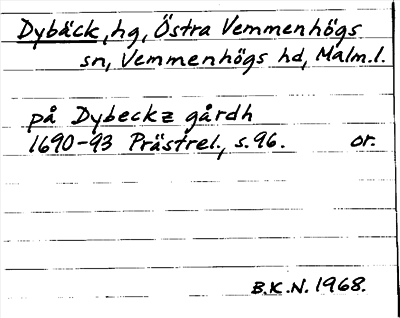 Dybäck, hg, Östra Vemmenhögs
sn, Vemmenhögs hd, Malm.l.
på Dybeckz gårdh
1690-93 Prästrel., s. 96. or.
B.K.N. 1968.